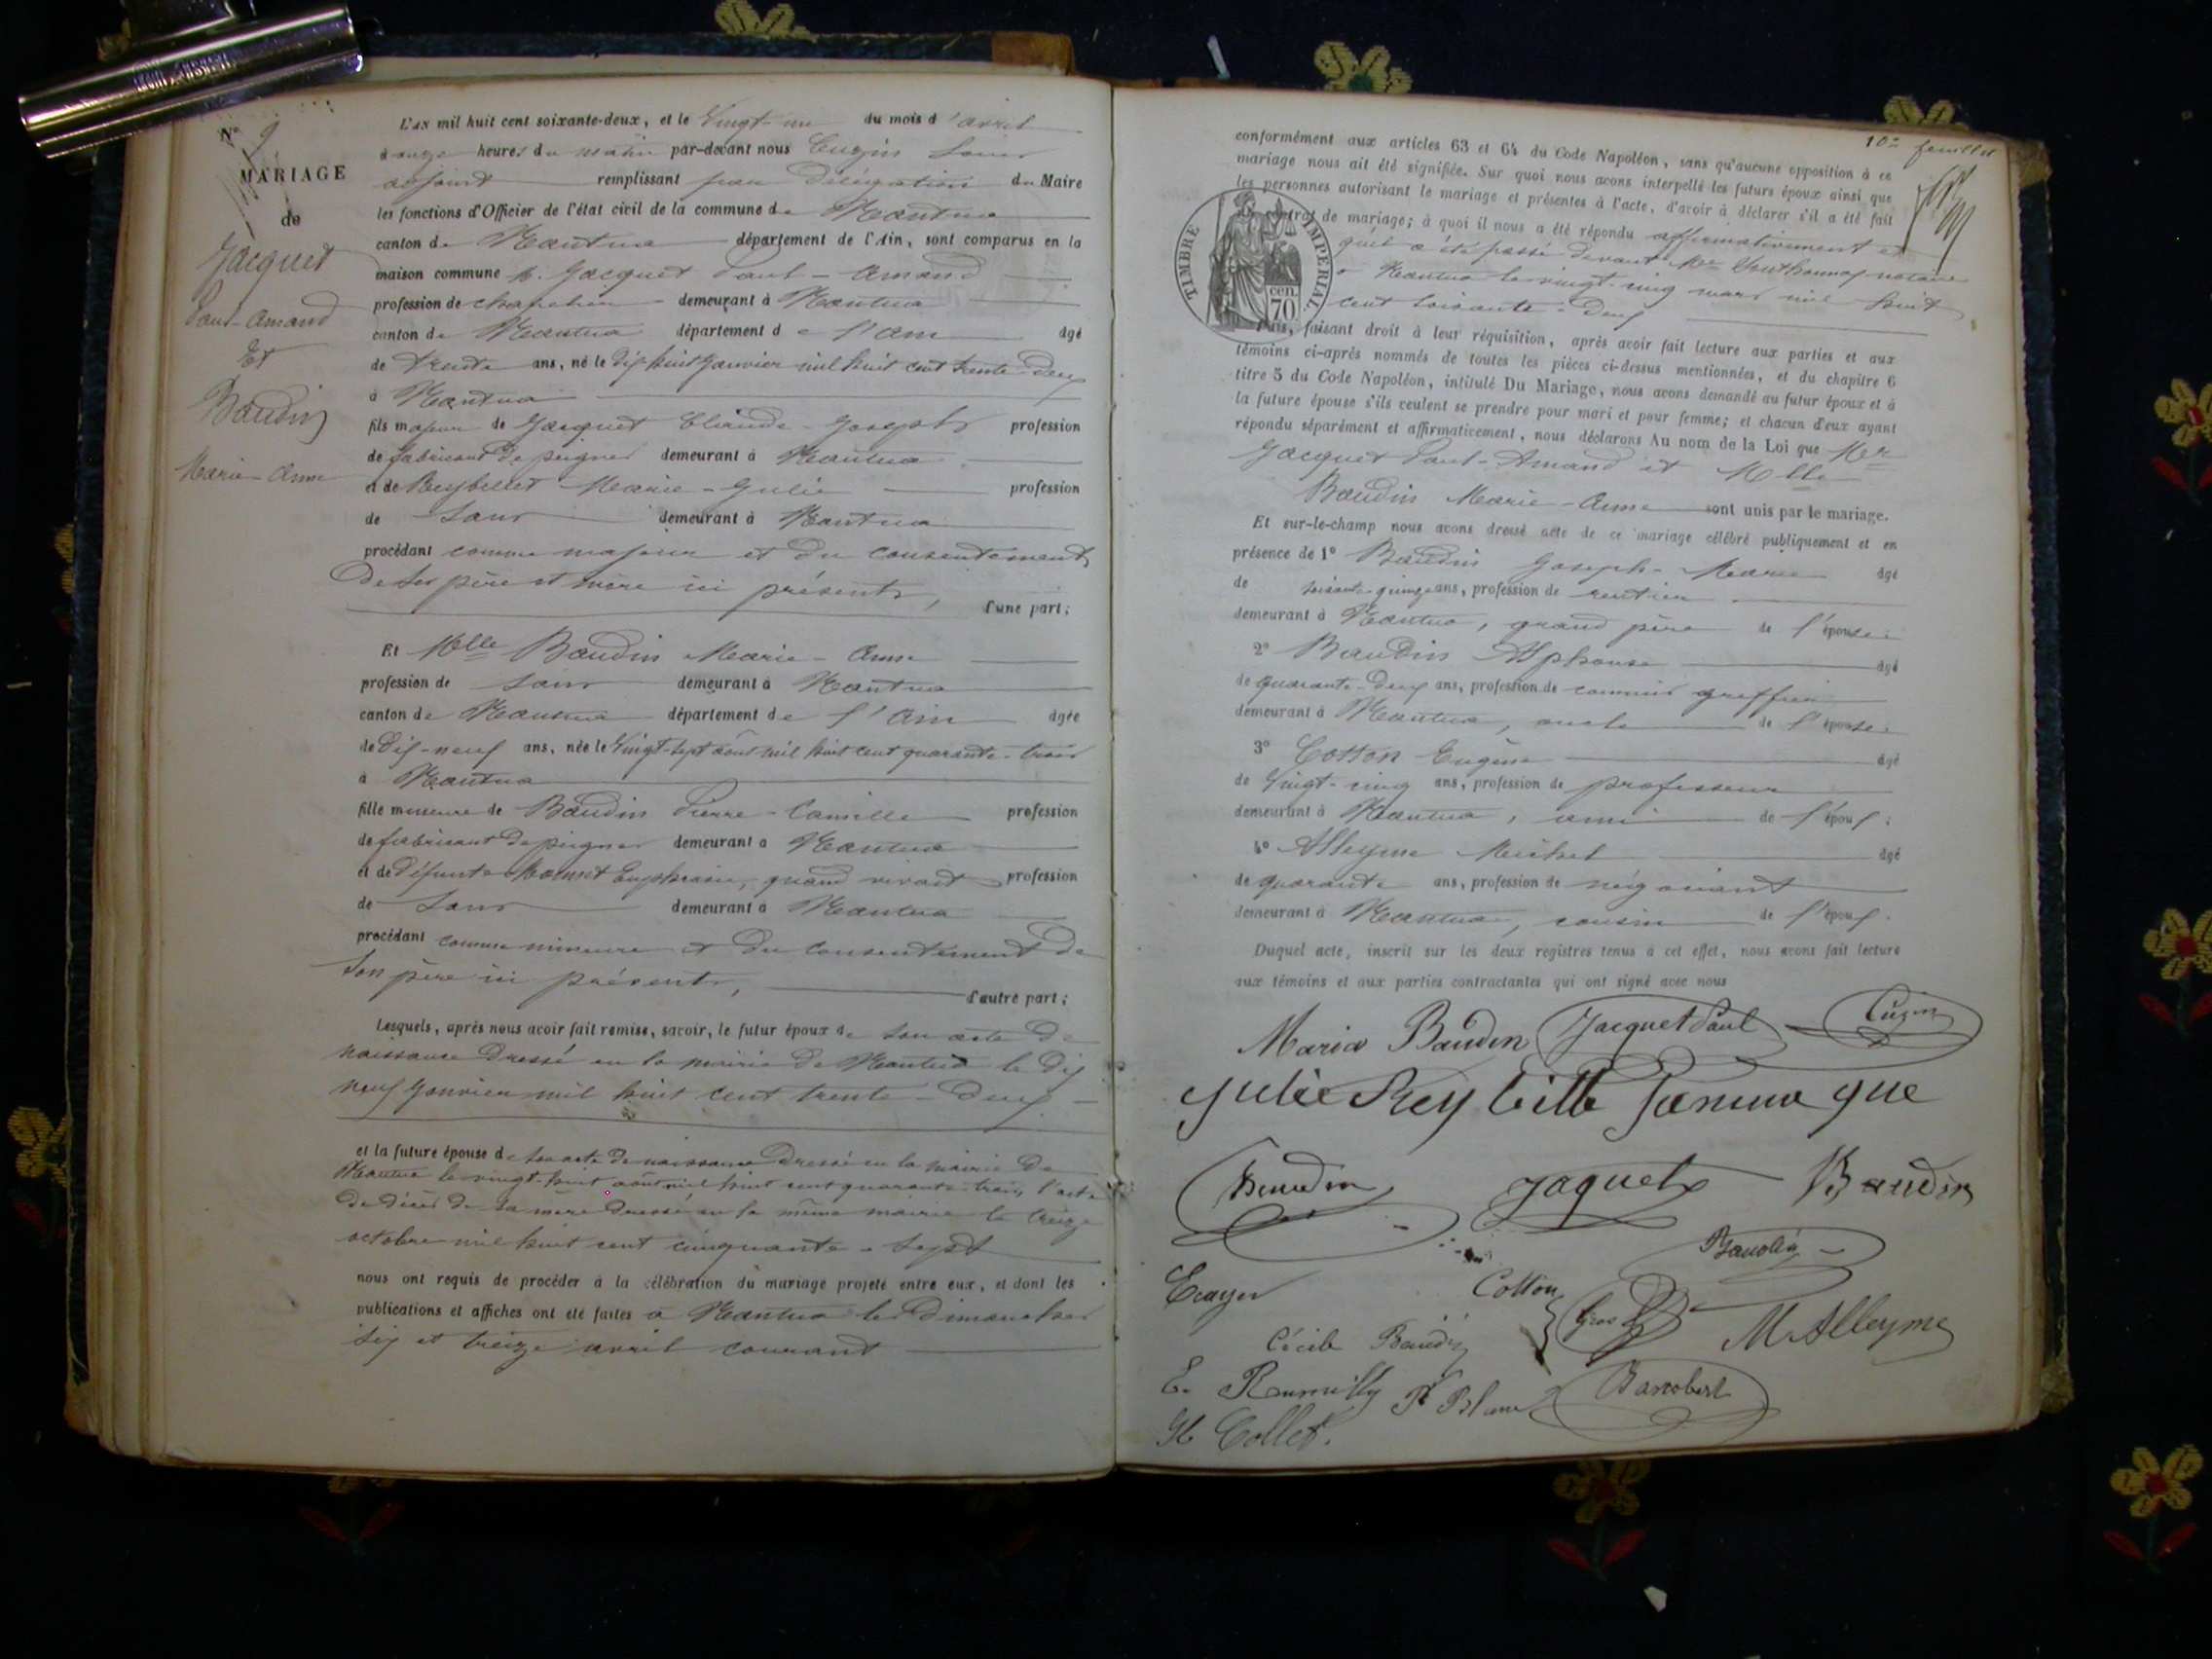 N° 9
MARIAGE
de
Jacquet
Paul-Amand
Et
Baudin
Marie-Anne
L'AN mil huit cent soixante-deux, et le Vingt-un du mois d'avril
à onze heures du matin par-devant nous Cuzin Louis
adjoint remplissant par Délégation du Maire
les fonctions d'Officier de l'état civil de la commune de Nantua
canton de Nantua département de l'Ain, sont comparus en la
maison commune M. Jacquet Paul-Amand
profession de chapelier demeurant à Nantua
canton de Nantua département de l'Ain âgé
de trente ans, né le dix huit Janvier mil huit cent trente-deux
à Nantua
fils majeur de Jacquet Claude-Joseph profession
de fabricant de peignes demeurant à Nantua
et de Reybillet Marie-Julie profession
de sans demeurant à Nantua
procédant comme majeur et du consentement
de ses père et mère ici présents,
d'une part;
Et Melle Baudin Marie-Anne
profession de sans demeurant à Nantua
canton de Nantua département de l'Ain âgée
de dix-neuf ans, née le Vingt-sept août mil huit cent quarante-trois
à Nantua
fille mineure de Baudin Pierre-Camille profession
de fabricant de peignes demeurant à Nantua
et de défunte Euphrasie, quand vivait profession
de sans demeurant à Nantua
procédant comme mineure et du consentement de
son père ici présent,
d'autre part;
Lesquels, après nous avoir fait remise, savoir, le futur époux de son acte de
naissance dressé en la mairie de Nantua le dix
neuf Janvier mil huit cent trente-deux
et la future épouse de son acte de naissance dressé en la mairie de
Nantua le vingt-huit août mil huit cent quarante-trois, l'acte
de décès de sa mère dressé en la même mairie le treize
octobre mil huit cent cinquante-sept
nous ont requis de procéder à la célébration du mariage projeté entre eux, et dont les
publications et affiches ont été faites à Nantua les Dimanches
six et treize avril courant
10e feuillet
conformément aux articles 63 et 64 du Code Napoléon, sans qu'aucune opposition à ce
mariage nous ait été signifiée. Sur quoi nous avons interpellé les futurs époux ainsi que
les personnes autorisant le mariage et présentes à l'acte, d'avoir à déclarer s'il a été fait
contrat de mariage; à quoi il nous a été répondu affirmativement et
qu'il a été passé devant Me notaire
à Nantua le vingt-cinq mars mil huit
cent soixante-deux
TIMBRE IMPERIAL
70 cen.
Puis, faisant droit à leur réquisition, après avoir fait lecture aux parties et aux
témoins ci-après nommés de toutes les pièces ci-dessus mentionnées, et du chapitre 6
titre 5 du Code Napoléon, intitulé Du Mariage, nous avons demandé au futur époux et à
la future épouse s'ils veulent se prendre pour mari et pour femme; et chacun d'eux ayant
répondu séparément et affirmativement, nous déclarons Au nom de la Loi que Mr
Jacquet Paul-Amand et Melle
Baudin Marie-Anne sont unis par le mariage.
Et sur-le-champ nous avons dressé acte de ce mariage célébré publiquement et en
présence de 1° Baudin Joseph-Marie âgé
de soixante-quinze ans, profession de rentier
demeurant à Nantua, grand père de l'épouse.
2° Baudin Alphonse âgé
de quarante-deux ans, profession de commis greffier
demeurant à Nantua, oncle de l'épouse.
3° Cotton Eugène âgé
de Vingt-cinq ans, profession de professeur
demeurant à Nantua, ami de l'époux;
4° Alleyme Michel âgé
de quarante ans, profession de négociant
demeurant à Nantua, cousin de l'époux.
Duquel acte, inscrit sur les deux registres tenus à cet effet, nous avons fait lecture
aux témoins et aux parties contractantes qui ont signé avec nous
Maria Baudin Jacquet Paul Cuzin
Julie Reybille
Baudin Jaquet Baudin
Baudin
Cotton
Gros
M. Alleyme
Cécile Baudin
E. Rumilly
H Collet.